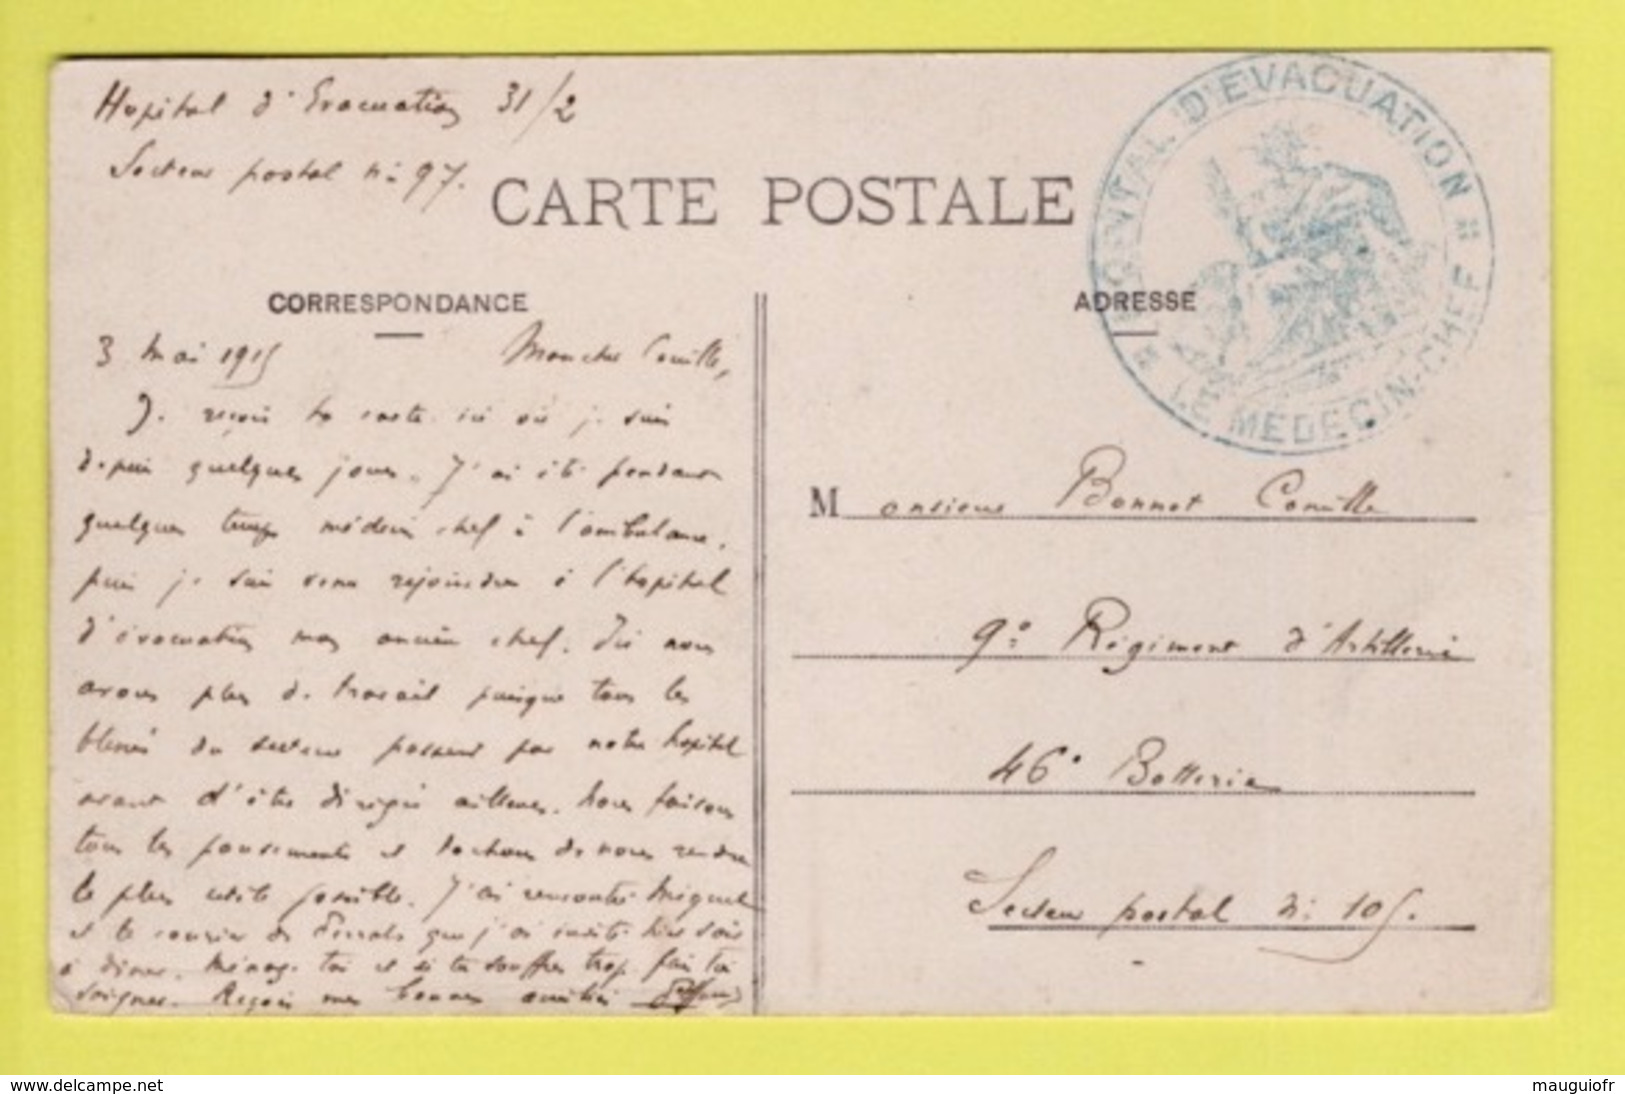 Hopital d'Evacuation 31/2
Secteur postal n: 97.
CARTE POSTALE
HOPITAL D'EVACUATION
LE MEDECIN-CHEF
CORRESPONDANCE
ADRESSE
3 mai 1915 Camille,
Je reçois ta carte ici où je suis
depuis quelques jours. J'ai été pendant
quelques temps médecin chef à l'ambulance,
puis je suis venu rejoindre à l'hopital
d'évacuation mon ancien chef. Ici nous
avons plus de travail puisque tous les
blessés du secteur passent par notre hopital
avant d'être dirigés ailleurs. Nous faisons
tous les pansements et tachons de nous rendre
le plus utile possible. J'ai rencontré Miquel
et le cousin de que j'ai invité hier soir
à diner. Ménage toi et si tu souffres trop fais toi
soigner. Reçois mes bonnes amitiés
Monsieur Bonnot Camille
9e Régiment d'Artillerie
46e Batterie
Secteur postal n: 105.
www.delcampe.net
mauguiofr